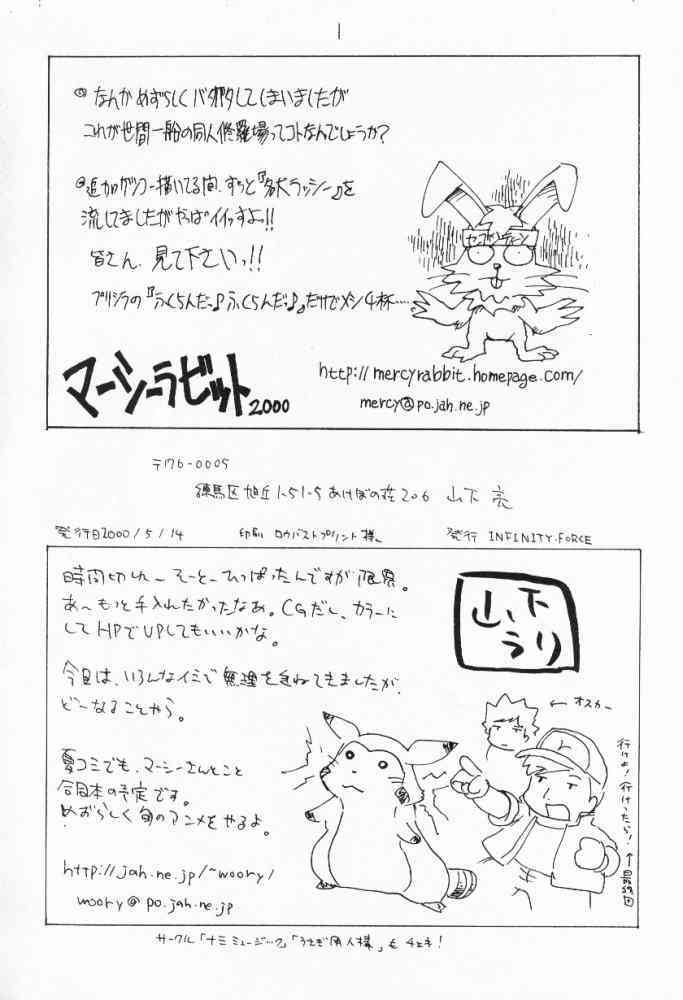 ◎なんかめずらしくバタバタしてしまいましたが
これが世間一般の同人修羅場ってコトなんでしょうか?
◎追加ゲンコー描いてる間、ずっと『名犬ラッシー』を
流してましたがやっぱイイっすよっ!!
皆さん、見て下さいっ!!
プリシラの『ふくらんだっ♪ふくらんだっ♪』だけでメシ4杯……
セブンティーン
マーシーラビット2000
http://mercyrabbit.homepage.com/
mercy@po.jah.ne.jp
〒176-0005
練馬区旭丘1-51-5あけぼの荘206 山下 亮
発行日2000/5/14 印刷 ロウバストプリント様 発行 INFINITY-FORCE
時間切れー そーとーひっぱったんですが限界。
あ〜もっと手入れたかったなあ。CGだし、カラーに
してHPでUPしてもいいかな。
今回は、いろんなイミで無理を重ねてきましたが、
どーなることやら。
夏コミでも、マーシーさんとこと
合同本の予定です。
めずらしく旬のアニメをやるよ。
http://jah.ne.jp/~woory/
woory@po.jah.ne.jp
山下
うり
←オスカー
行けよ!行けったら!
↑最終回
サークル「ナミミュージック」「うさぎ同人様」もチェキ!